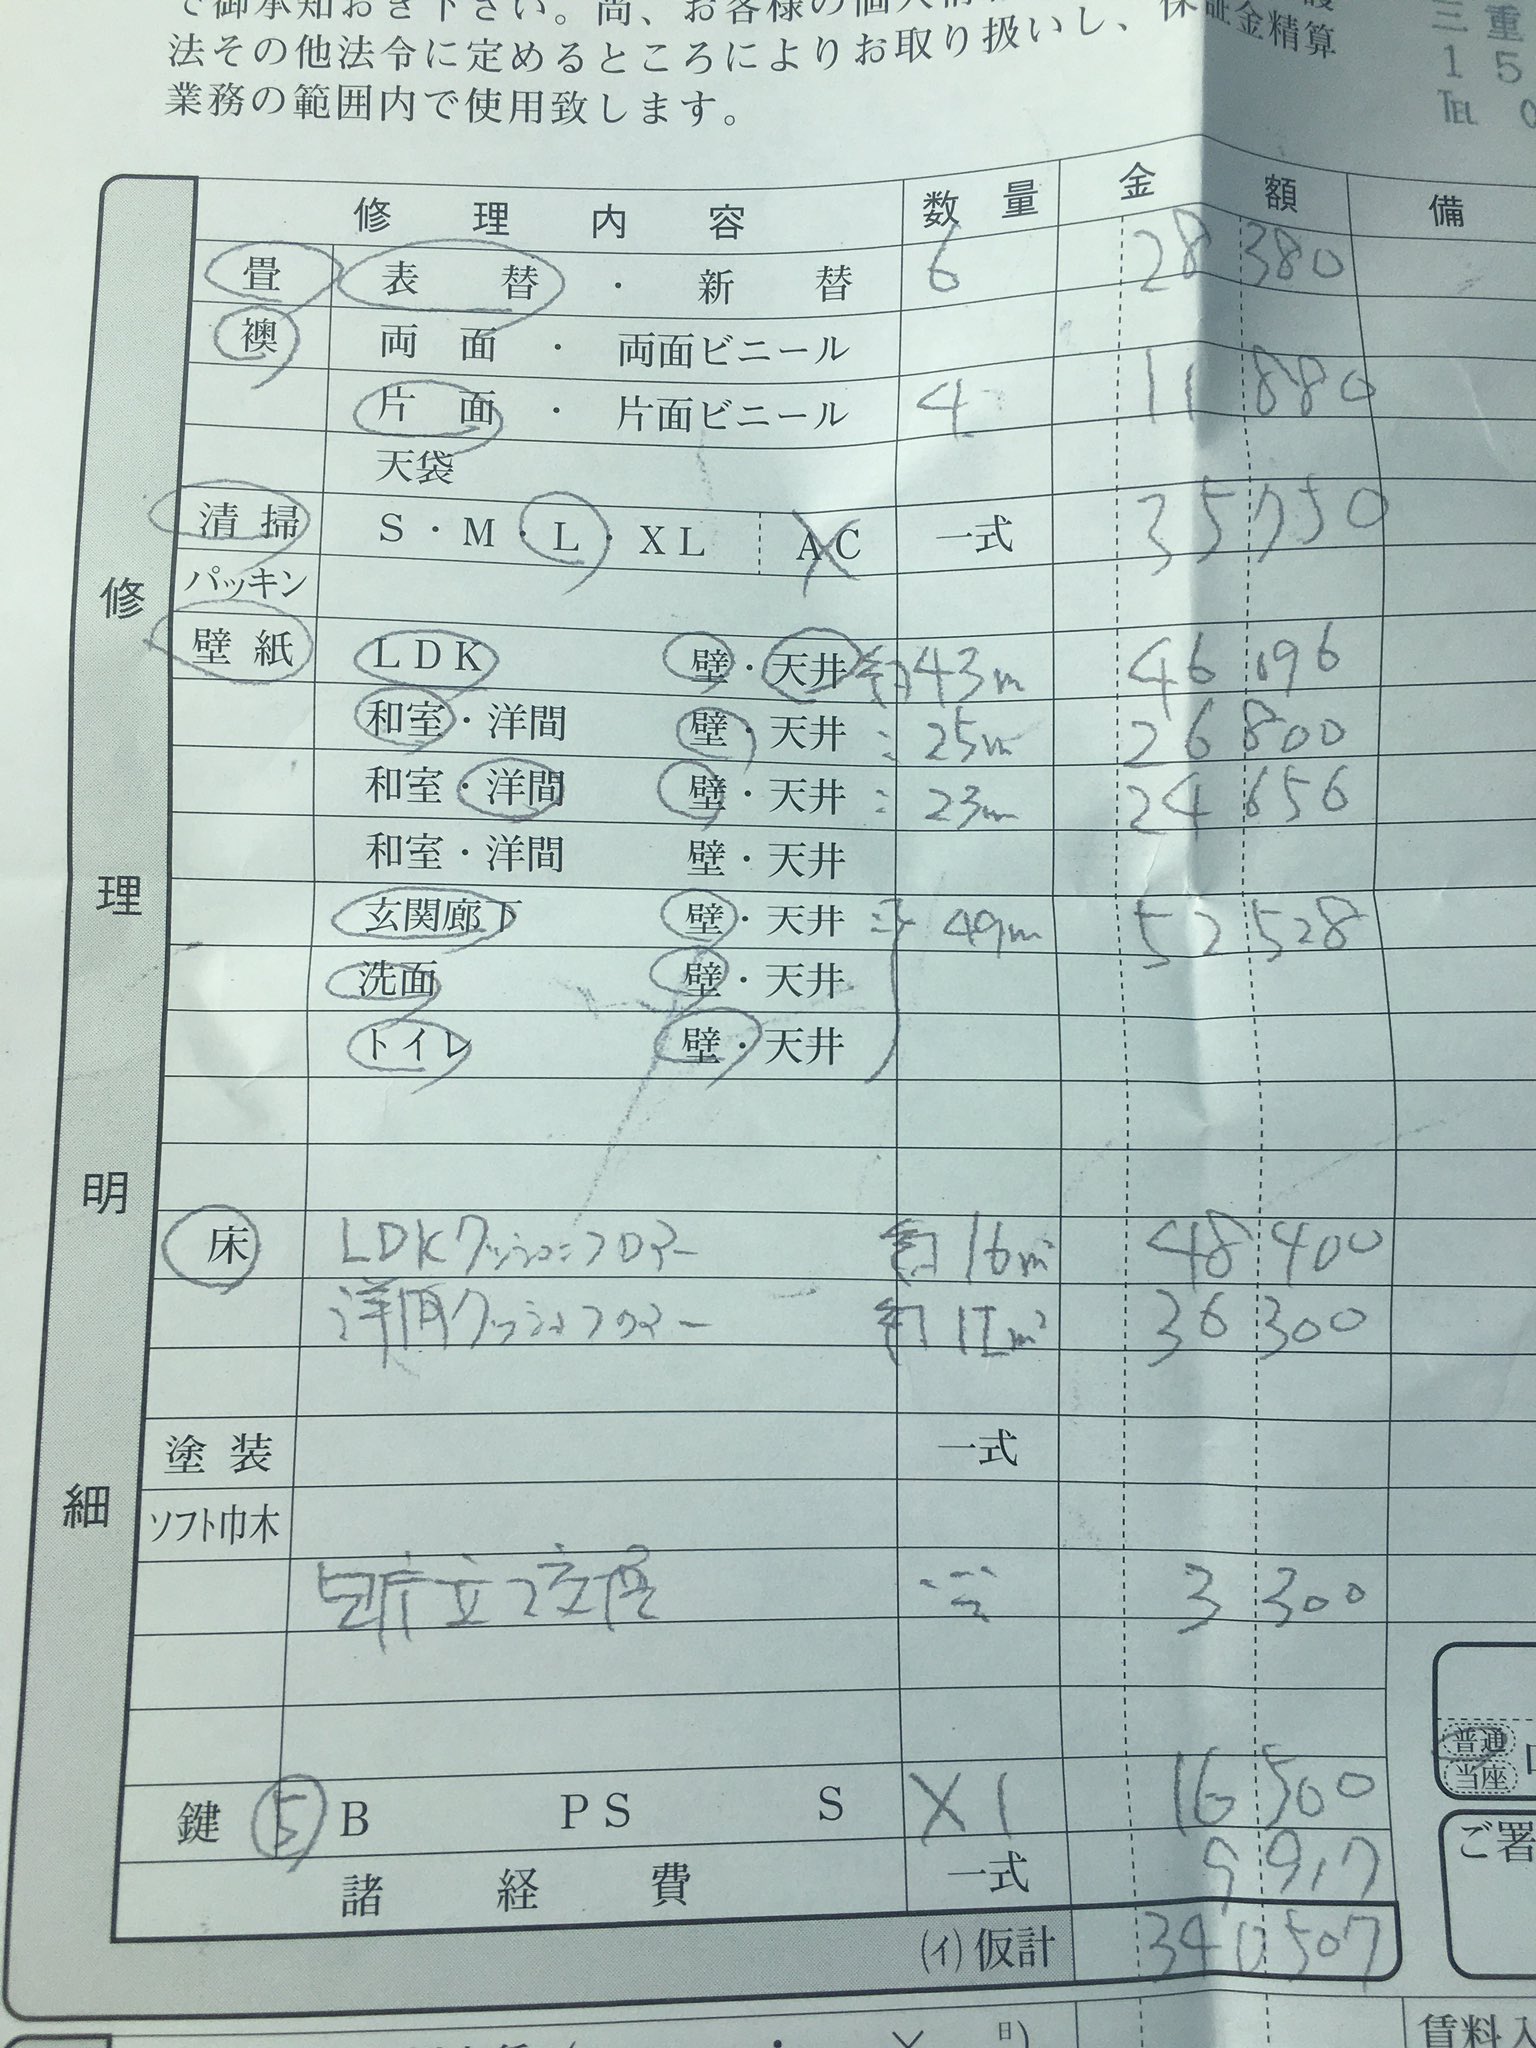 で御承知おき下さい。尚、お客様の個人情
法その他法令に定めるところによりお取り扱いし、保証金精算
業務の範囲内で使用致します。
三重
15
TEL 0
修理明細
修理内容 数量 金額 備
畳 表替・新替 6 28 380
襖 両面・両面ビニール
片面・片面ビニール 4 11 880
天袋
清掃 S・M・L・XL AC 一式 35 750
パッキン
壁紙 LDK 壁・天井 約43m 46 096
和室・洋間 壁・天井 〃 25m 26 800
和室・洋間 壁・天井 〃 23m 24 656
和室・洋間 壁・天井
玄関廊下 壁・天井 計 49m 52 528
洗面 壁・天井
トイレ 壁・天井
床 LDKクッションフロアー 約16m² 48 400
洋間クッションフロアー 約12m² 36 300
塗装 一式
ソフト巾木
3 300
鍵 5 B PS S X1 16 500
諸経費 一式 9 917
(イ)仮計 340 507
普通
当座
ご署
日)
賃料入